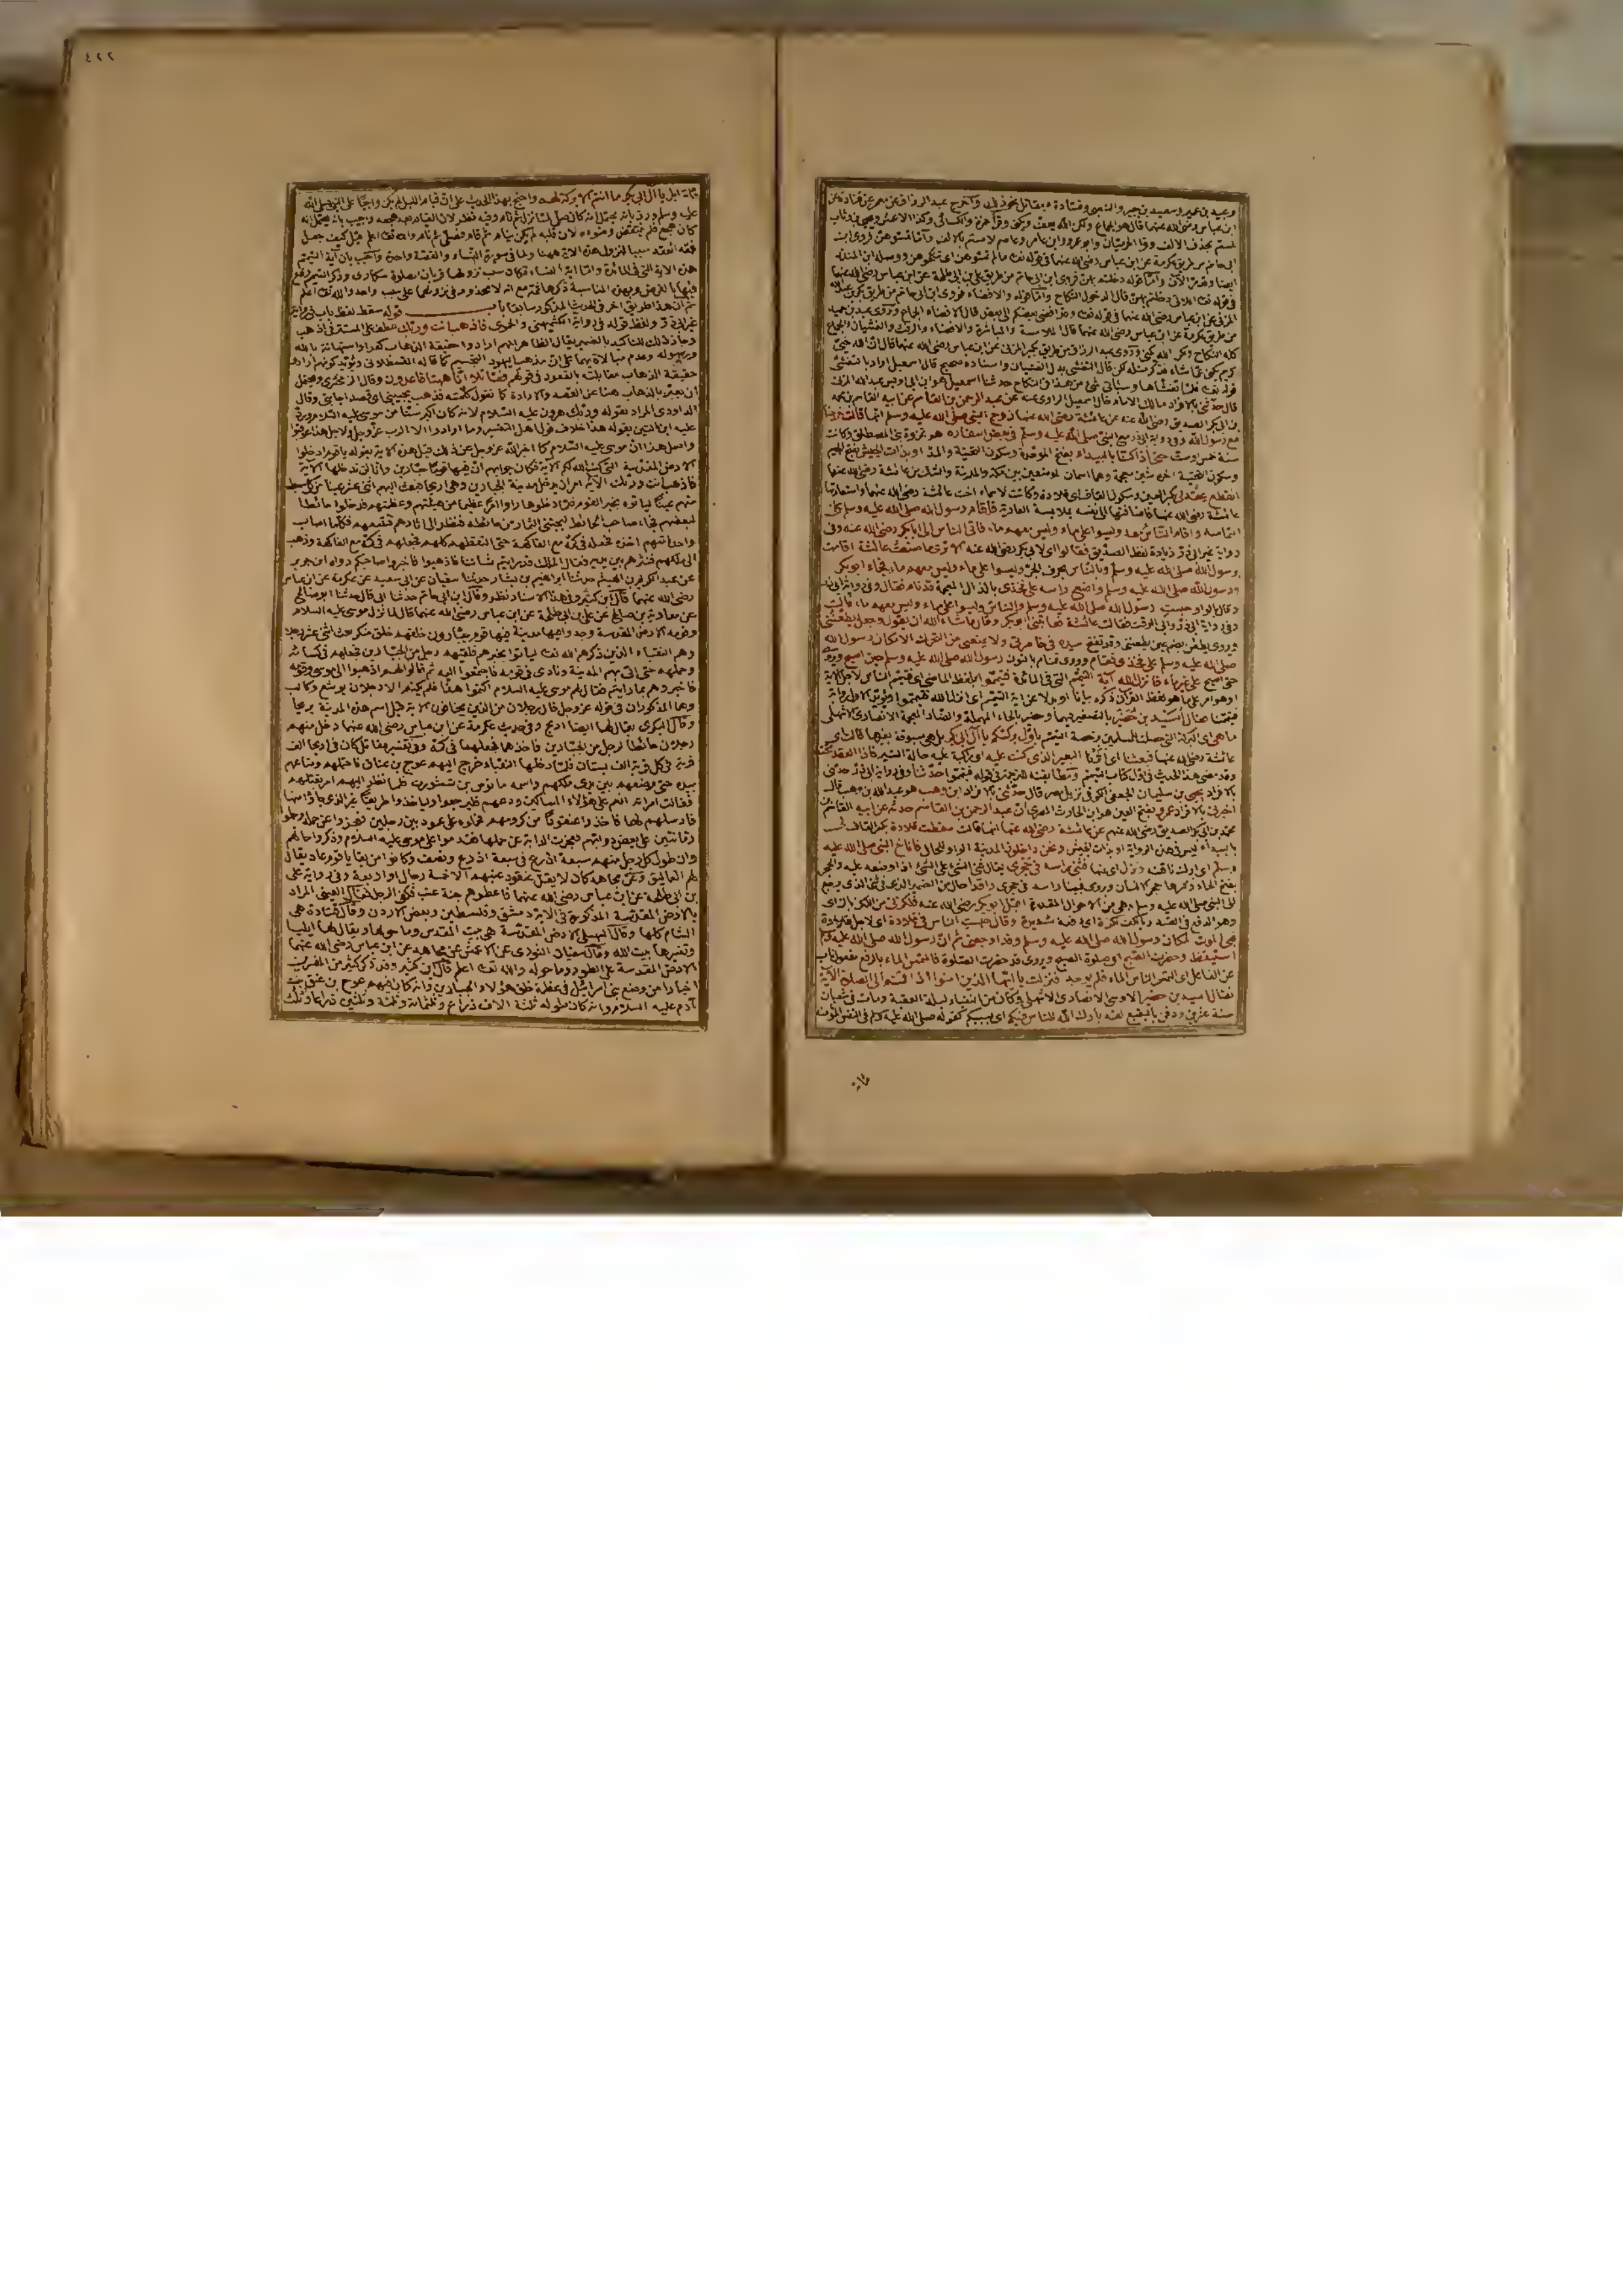 وعبيد بن عمير وسعيد بن جبير والشعبي وقتادة ومقاتل نحو ذلك وأخرج عبد الرزاق عن معمر عن قتادة عن
ابن عباس رضي الله عنهما قال هو الجماع ولكن الله يعف ويكني وقرأ حمزة والكسائي وكذا الاعمش ويحيى بن وثاب
لمستم بحذف الالف وقرأ الحرميان وابو عمرو وابن عامر وعاصم لامستم بالالف وأما تمسوهن فروى ابن
ابي حاتم من طريق عكرمة عن ابن عباس رضي الله عنهما في قوله تعالى ما لم تمسوهن اى تنكحوهن
في قوله تعالى اللاتي دخلتم بهن قال الدخول النكاح وأما قوله والافضاء فروى ابن ابي حاتم من طريق بكر بن عبد الله
المزني عن ابن عباس رضي الله عنهما في قوله تعالى وقد افضى بعضكم الى بعض قال الافضاء الجماع وروى عبد بن حميد
من طريق عكرمة عن ابن عباس رضي الله عنهما قال الملامسة والمباشرة والافضاء والرفث والغشيان والجماع
كله النكاح ولكن الله يكني وروى عبد الرزاق من طريق بكر المزني عن ابن عباس رضي الله عنهما قال ان الله حيي
كريم يكني عما شاء فذكر مثله لكن قال التغشي بدل الغشيان واسناده صحيح قال اسمعيل اراد بالتغشي
قوله تعالى فلما تغشاها وسيأتي شئ من هذا في النكاح حدثنا اسمعيل هو ابن ابي اويس عبد الله المدني
قال حدثني بالافراد مالك الامام عن عبد الرحمن بن القاسم عن ابيه القاسم بن محمد
بن ابي بكر الصديق رضي الله عنه عن عائشة رضي الله عنها زوج النبي صلى الله عليه وسلم انها قالت خرجنا
مع رسول الله صلى الله عليه وسلم في بعض اسفاره هو غزوة بني المصطلق وكانت
سنة خمس او ست حتى اذا كنا بالبيداء بفتح الموحدة وسكون التحتية والمد او بذات الجيش بفتح الجيم
وسكون التحتية اخره شين معجمة وهما اسمان لموضعين بين مكة والمدينة والشك من عائشة رضي الله عنها
انقطع عقد لي بكسر العين وسكون القاف اى قلادة وكانت لاسماء اخت عائشة رضي الله عنهما واستعارتها
عائشة رضي الله عنها فاضافتها الى نفسها بملابسة العارية فاقام رسول الله صلى الله عليه وسلم على
التماسه واقام الناس معه وليسوا على ماء وليس معهم ماء فاتى الناس الى ابي بكر رضي الله عنه وفي
رواية غير ابي ذر زيادة لفظ الصديق فقالوا اى لابي بكر رضي الله عنه الا ترى ما صنعت عائشة اقامت
برسول الله صلى الله عليه وسلم وبالناس بحرف الجر وليسوا على ماء وليس معهم ماء فجاء ابو بكر
ورسول الله صلى الله عليه وسلم واضع راسه على فخذي بالذال المعجمة قد نام فقال
حبست رسول الله صلى الله عليه وسلم والناس وليسوا على ماء وليس معهم ماء قالت
فقالت عائشة فعاتبني ابو بكر وقال ما شاء الله ان يقول وجعل يطعنني
بيده في خاصرتي ولا يمنعني من التحرك الا مكان رسول الله
صلى الله عليه وسلم على فخذي فقام وروى فنام بالنون رسول الله صلى الله عليه وسلم حين اصبح
حتى اصبح على غير ماء فانزل الله آية التيمم التي في المائدة فتيمموا بلفظ الماضي اى فتيمم الناس لاجل الآية
فقال اسيد بن حضير بالتصغير فيهما وحضير بالحاء المهملة والضاد المعجمة الانصاري الاشهلي
ما هي اى البركة التي حصلت للمسلمين برخصة التيمم باول بركتكم يا آل ابي بكر بل هي مسبوقة بغيرها قالت اى
عائشة رضي الله عنها فبعثنا اى اثرنا البعير الذي كنت عليه اى راكبة عليه حالة السير فاذا العقد تحته
وقد مضى هذا الحديث في اول كتاب التيمم ومطابقته للترجمة في قوله فتيمموا حدثنا وفي رواية ابي ذر حدثني
بالافراد يحيى بن سليمان الجعفي الكوفي نزيل مصر قال حدثني بالافراد ابن وهب هو عبد الله بن وهب قال
اخبرني بالافراد عمرو بفتح العين هو ابن الحارث المصري ان عبد الرحمن بن القاسم حدثه عن ابيه القاسم
محمد بن ابي بكر الصديق رضي الله عنهم عن عائشة رضي الله عنها انها قالت سقطت قلادة بكسر القاف لي
بالبيداء ليس في هذه الرواية او بذات الجيش ونحن داخلون المدينة الواو للحال فاناخ النبي صلى الله عليه
وسلم اى ابرك ناقته ونزل اى عنها فثنى راسه في حجري يقال ثنى الشئ على الشئ اذا وضعه عليه والحجر
بفتح الحاء وكسرها حجر الانسان
الى النبي صلى الله عليه وسلم وهي من الاحوال المقدرة اقبل ابو بكر رضي الله عنه فلكزني من اللكز بالزاى
وهو الدفع في الصدر بالكف لكزة اى دفعة شديدة وقال حبست الناس في قلادة اى لاجل قلادة
فبي الموت لمكان رسول الله صلى الله عليه وسلم وقد اوجعني ثم ان رسول الله صلى الله عليه وسلم
استيقظ وحضرت الصبح اى صلوة الصبح ويروى قد حضرت الصلوة فالتمس الماء بالرفع مفعول ناب
عن الفاعل اى التمس الناس الماء فلم يوجد فنزلت يا ايها الذين امنوا اذا قمتم الى الصلوة الآية
فقال اسيد بن حضير الاوسي الانصاري الاشهلي وكان من النقباء ليلة العقبة ومات في شعبان
سنة عشرين ودفن بالبقيع لقد بارك الله للناس فيكم اى بسببكم كقوله صلى الله عليه وسلم في النفس المؤمنة
مائة
٤٢٢
مائة ابل يا آل ابي بكر ما انتم الا بركة لهم واحتج بهذا الحديث على ان قيام الليل لم يكن واجبا على النبي صلى الله
عليه وسلم ورد بانه يحتمل انه كان صلى لما نزل ثم نام وفيه نظر لان
فقد العقد سببا لنزول هذه الآية ههنا
هذه الآية التي في المائدة
ثم ان هذا طريق آخر في الحديث المذكور سابقا باب قوله سقط لفظ باب في رواية
غير ابي ذر ولفظ قوله في رواية الكشميهني والحموى فاذهب انت وربك عطف على المستتر في اذهب
وجاز ذلك للتاكيد بالضمير يقال الظاهر انهم ارادوا حقيقة الذهاب كفرا واستهانة بالله
ورسوله وعدم مبالاة بهما على ان مذهب اليهود التجسيم كما قاله القسطلاني ويؤيد كونهم ارادوا
حقيقة الذهاب مقابلته بالقعود في قولهم فقاتلا انا ههنا قاعدون وقال الزمخشري ويحتمل
ان يعبر بالذهاب هنا عن القصد والارادة كما تقول كلمته فذهب يجيبني اى قصد اجابتي وقال
الداودي المراد بقوله وربك هرون عليه السلام لانه كان اكبر سنا من موسى عليه السلام ورد
عليه ابن التين بقوله هذا خلاف قول اهل التفسير وما ارادوا الا الرب عز وجل ولاجل هذا عوقبوا
واصل هذا ان موسى عليه السلام كما اخبر الله عز وجل عنه قبل هذه الآية بقوله يا قوم ادخلوا
الارض المقدسة التي كتب الله لكم الآية فكان جوابهم ان فيها قوما جبارين وانا لن ندخلها الآية
فاذهب انت وربك الآية
منهم عينا ليأتوه بخبر القوم فلما دخلوها راوا امرا عظيما من هيئتهم وعظمتهم فدخلوا حائطا
لبعضهم فجاء صاحب الحائط ليجتني الثمار من حائطه فنظر الى اثارهم فتتبعهم فكلما اصاب
واحدا منهم اخذه فجعله في كمه مع الفاكهة حتى التقطهم كلهم فجعلهم في كمه مع الفاكهة وذهب
الى ملكهم فنثرهم بين يديه فقال الملك قد رايتم شاننا فاذهبوا فاخبروا صاحبكم رواه ابن جرير
عن عبد الكريم بن الهيثم حدثنا ابراهيم بن بشار حدثنا سفيان عن ابي سعيد عن عكرمة عن ابن عباس
رضي الله عنهما قال ابن كثير وفي هذا الاسناد نظر وقال ابن ابي حاتم حدثنا ابي قال حدثنا ابو صالح
عن معاوية بن صالح عن علي بن ابي طلحة عن ابن عباس رضي الله عنهما قال لما نزل موسى عليه السلام
وقومه الارض المقدسة وجد واجهها مدينة فيها قوم جبارون خلقهم خلق منكر بعث اثني عشر رجلا
وهم النقباء الذين ذكرهم الله تعالى ليأتوا بخبرهم فلقيهم رجل من الجبارين فجعلهم في كسائه
وحملهم حتى اتى بهم المدينة ونادى في قومه فاجتمعوا اليه ثم قالوا لهم اذهبوا الى موسى وقومه
فاخبروهم بما رايتم فقال لهم موسى عليه السلام اكتموا هذا فلم يكتم الا رجلان يوشع وكالب
وهما المذكوران في قوله عز وجل قال رجلان من الذين يخافون الآية قيل اسم هذه المدينة يريحا
وقال البكري يقال لها ايضا اريح وفي حديث عكرمة عن ابن عباس رضي الله عنهما دخل منهم
رجلان حائطا لرجل من الجبارين فاخذهما فجعلهما في كمه وفي تفسير مقاتل كان في اريحا الف
قرية في كل قرية الف بستان فلما دخلها النقباء خرج اليهم عوج بن عناق فاحتملهم ومتاعهم
بيده حتى وضعهم بين يدى ملكهم واسمه مانوس بن ششورت فلما نظر اليهم امر بقتلهم
فقالت امراته انعم على هؤلاء المساكين ودعهم فليرجعوا وليأخذوا طريقا غير الذي جاؤا منها
فارسلهم لها فاخذوا عنقودا من كرومهم فحملوه على عمود بين رجلين فعجزوا عن حمله وحملوا
رمانتين على بعض دوابهم فعجزت الدابة عن حملها فقدموا على موسى عليه السلام وذكروا حالهم
وان طول كل رجل منهم سبعة اذرع في سبعة اذرع ونصف وكانوا من بقايا قوم عاد يقال
لهم العماليق وعن مجاهد كان لا يقل عنقود عنبهم الا خمسة رجال او اربعة وفي رواية علي
بن ابي طلحة عن ابن عباس رضي الله عنهما فاعطوهم حبة عنب تكفي الرجل
بالارض المقدسة المذكورة في الآية دمشق وفلسطين وبعض الاردن وقال قتادة هي
الشام كلها وقال السهيلي الارض المقدسة هي بيت المقدس وما حولها ويقال لها ايليا
وتفسيرها بيت الله وقال سفيان الثوري عن الاعمش عن مجاهد عن ابن عباس رضي الله عنهما
الارض المقدسة هي الطور وما حوله والله تعالى اعلم قال ابن كثير وقد ذكر كثير من المفسرين
اخبارا من وضع بني اسرائيل في عظمة خلق هؤلاء الجبارين وانه كان فيهم عوج بن عنق بنت
آدم عليه السلام وانه كان طوله ثلثة الاف ذراع وثلثمائة وثلثة وثلثين ذراعا وثلث